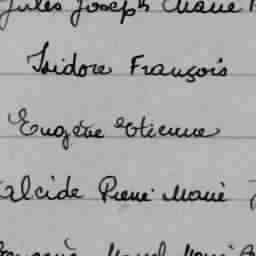 Jules Joseph Marie
Isidore François
Eugène Etienne
Alcide Pierre Marie